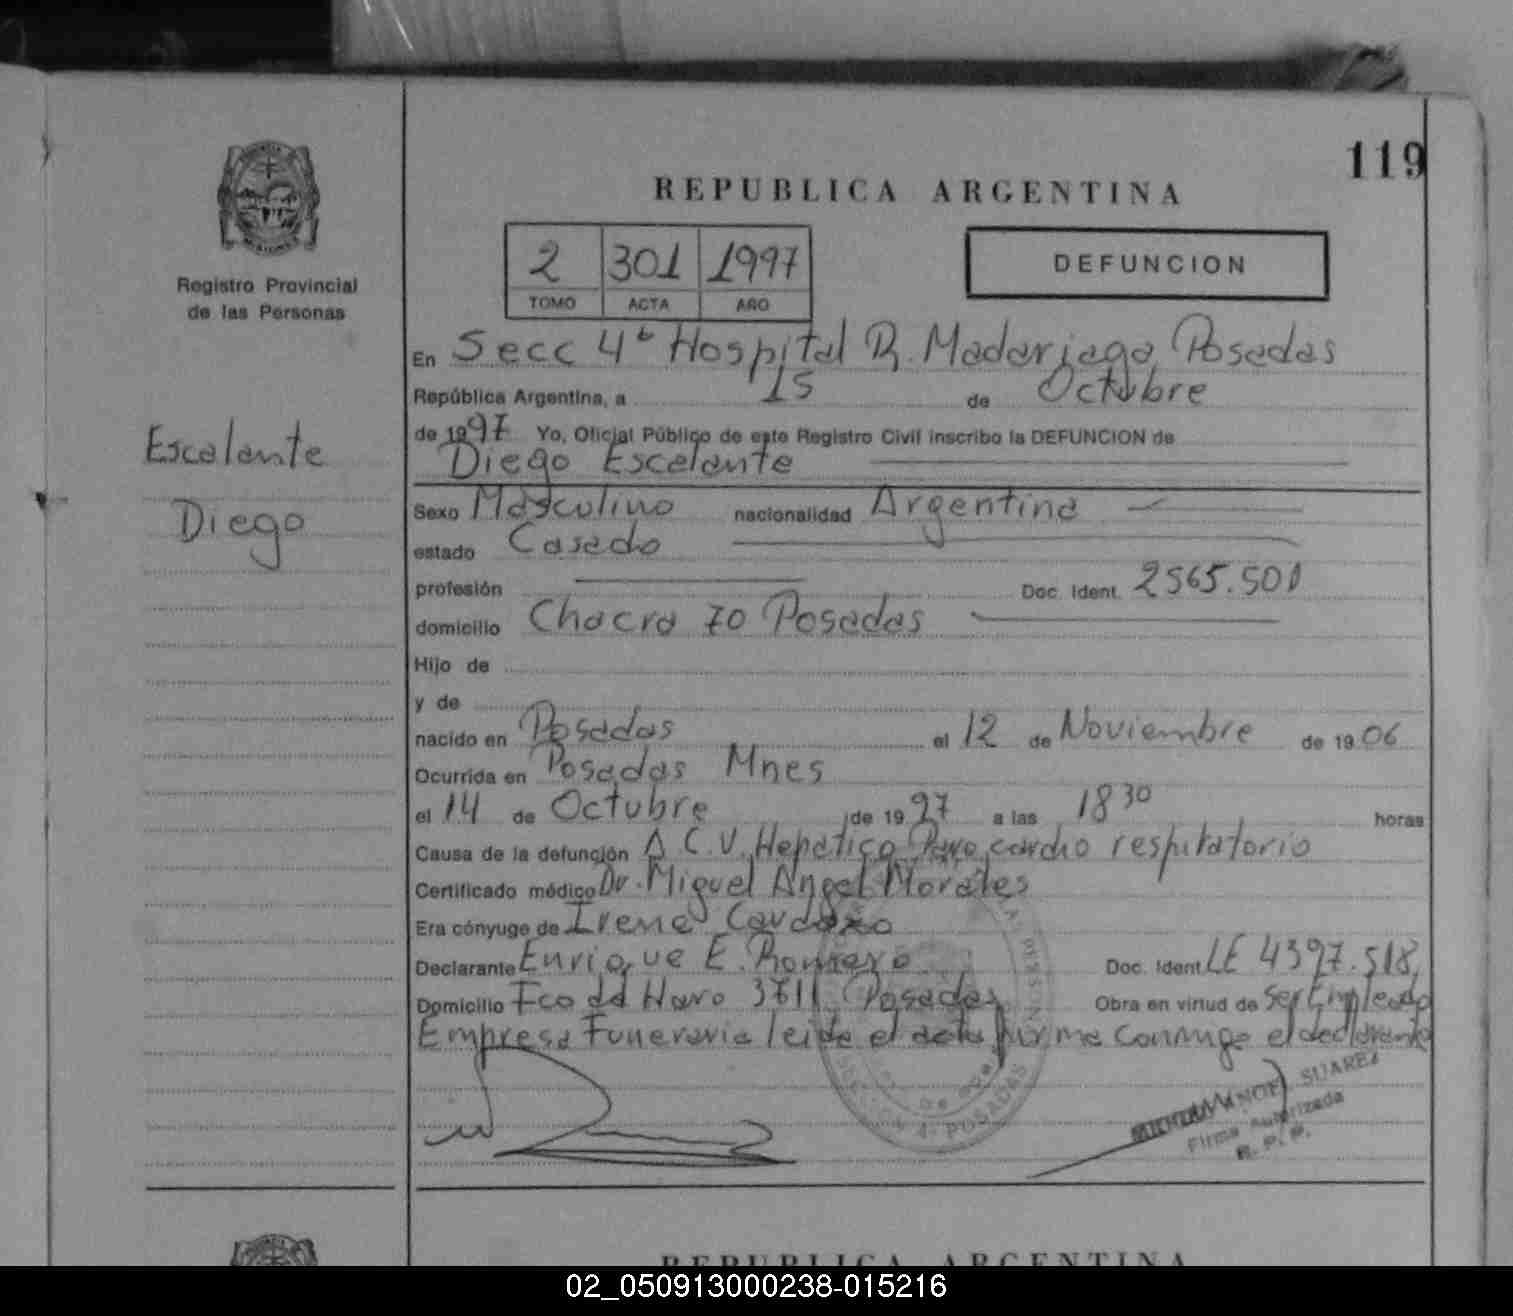 119
REPUBLICA ARGENTINA
2 301 1997
TOMO ACTA AÑO
DEFUNCION
Registro Provincial
de las Personas
Escalante
Diego
En Secc 4ª Hospital R. Madariaga Posadas
República Argentina, a 15 de Octubre
de 1997 Yo, Oficial Público de este Registro Civil inscribo la DEFUNCION de
Diego Escalante
Sexo Masculino nacionalidad Argentina
estado Casado
profesión Doc. Ident. 2565.501
domicilio Chacra 70 Posadas
Hijo de
y de
nacido en Posadas el 12 de Noviembre de 1906
Ocurrida en Posadas Mnes
el 14 de Octubre de 1997 a las 18 30 horas
Causa de la defunción A.C.V. Hepatico Paro cardio respiratorio
Certificado médico Dr. Miguel Angel Morales
Era cónyuge de Irene Cardozo
Declarante Enrique E. Romero Doc. Ident LE 4397.518
Domicilio Fco de Haro 3711 Posadas Obra en virtud de ser Empleado
Empresa Funeraria leida el acta firma conmigo el declarante
SECCION 4ª POSADAS
SUAREZ
Firma Autorizada
R. P. P.
REPUBLICA ARGENTINA
02_050913000238-015216